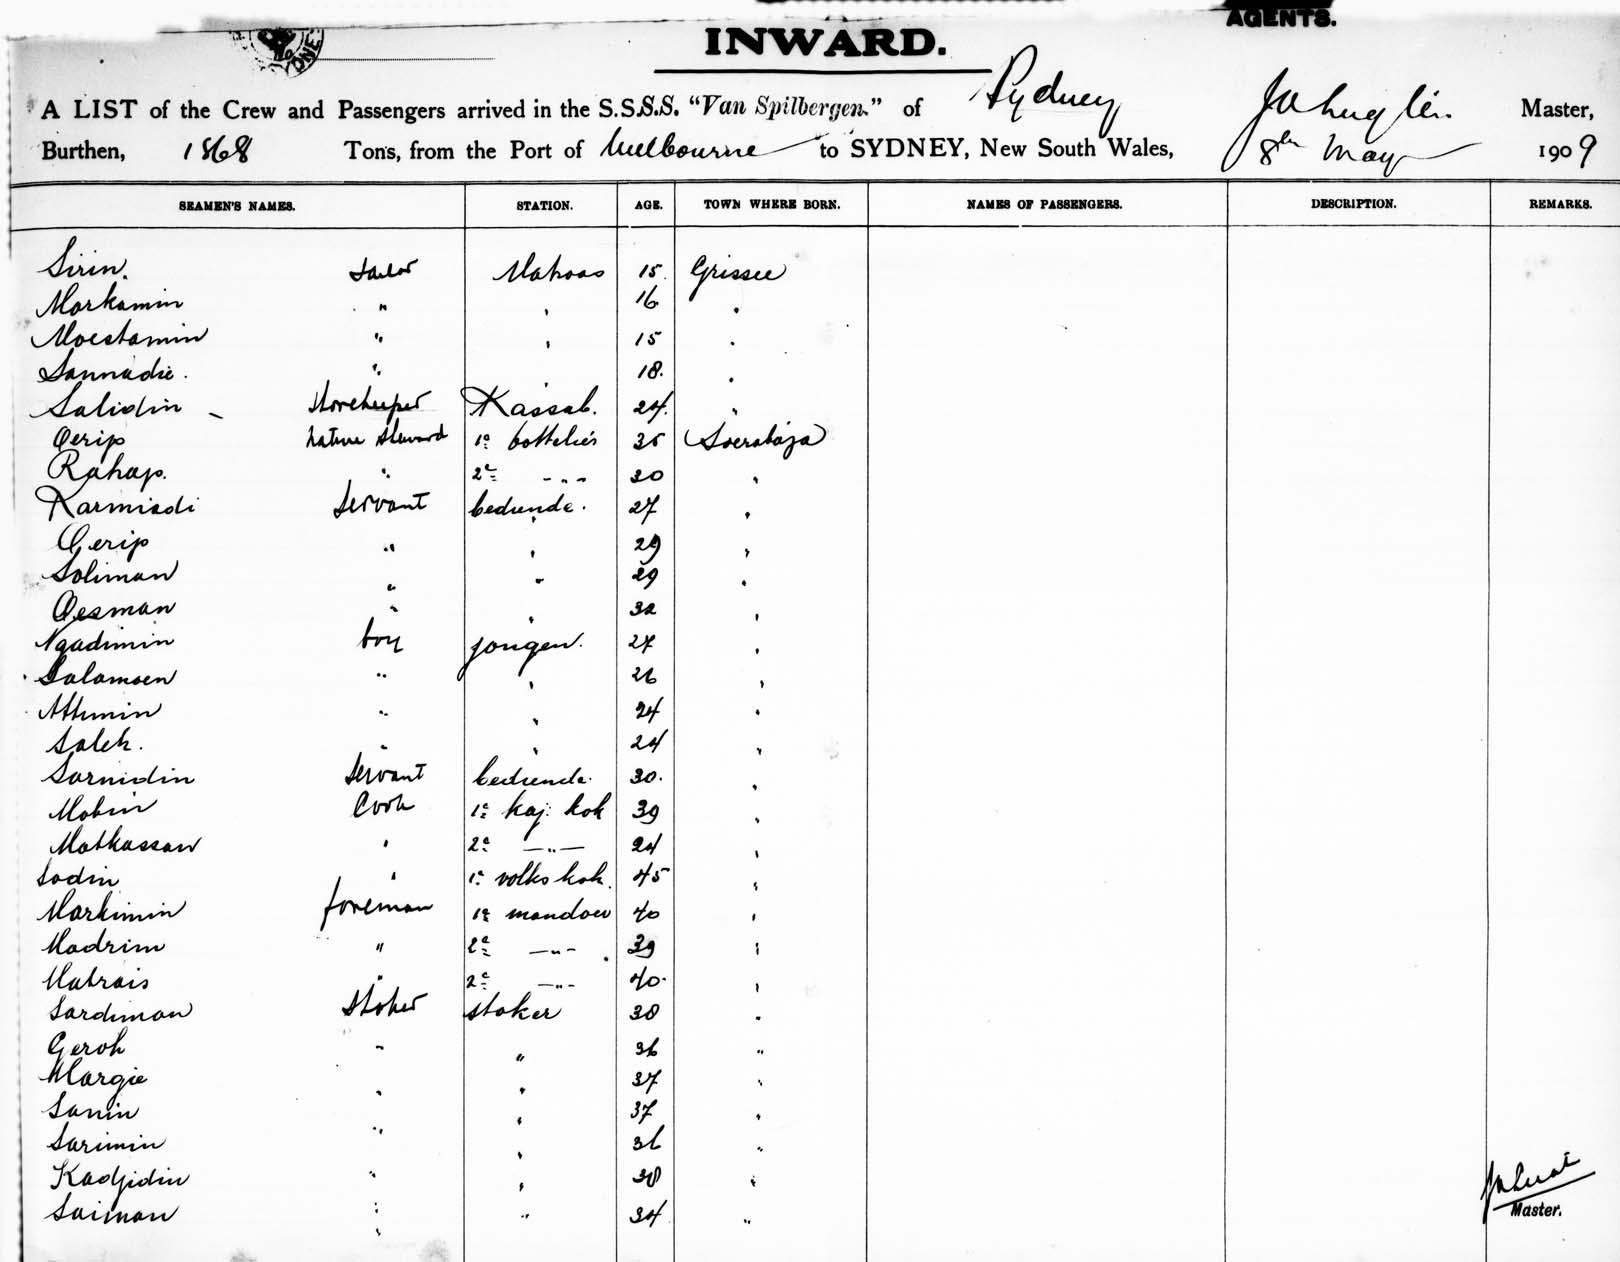 AGENTS.
INWARD.
A LIST of the Crew and Passengers arrived in the S.S.S.S. "Van Spilbergen." of Sydney Master,
Burthen, 1868 Tons, from the Port of Melbourne to SYDNEY, New South Wales, 8th May 1909
SEAMEN'S NAMES. STATION. AGE. TOWN WHERE BORN. NAMES OF PASSENGERS. DESCRIPTION. REMARKS.
Sirin. Sailor Matroos 15. Grissee
Markamin " " 16 "
Moestamin " " 15 "
Sannadie. " " 18. "
Salidin - Storekeeper Kassab. 24. "
Oerip Native Steward 1e bottelier 35 Soerabaja
Rahap. " 2e -"- 30 "
Karmiadi Servant bediende. 27 "
Oerip " " 29 "
Soliman " " 29 "
Oesman " " 32 "
Ngadimin boy jongen. 27 "
Salamoen " " 26 "
Atimin " " 24 "
Saleh. " " 24 "
Sarnidin Servant bediende. 30. "
Mobin Cook 1e kaj. kok 39 "
Matkassan " 2e -"- 24 "
Sodin " 1e volks kok. 45 "
Markimin foreman 1e mandoer 40 "
Madrim " 2e -"- 39 "
Matrais " 2e -"- 40. "
Sardiman Stoker stoker 38 "
Geroh " " 36 "
Margie " " 37 "
Sanin " " 37 "
Sarimin " " 36 "
Kadjidin " " 38 "
Saiman " " 34 "
Master.